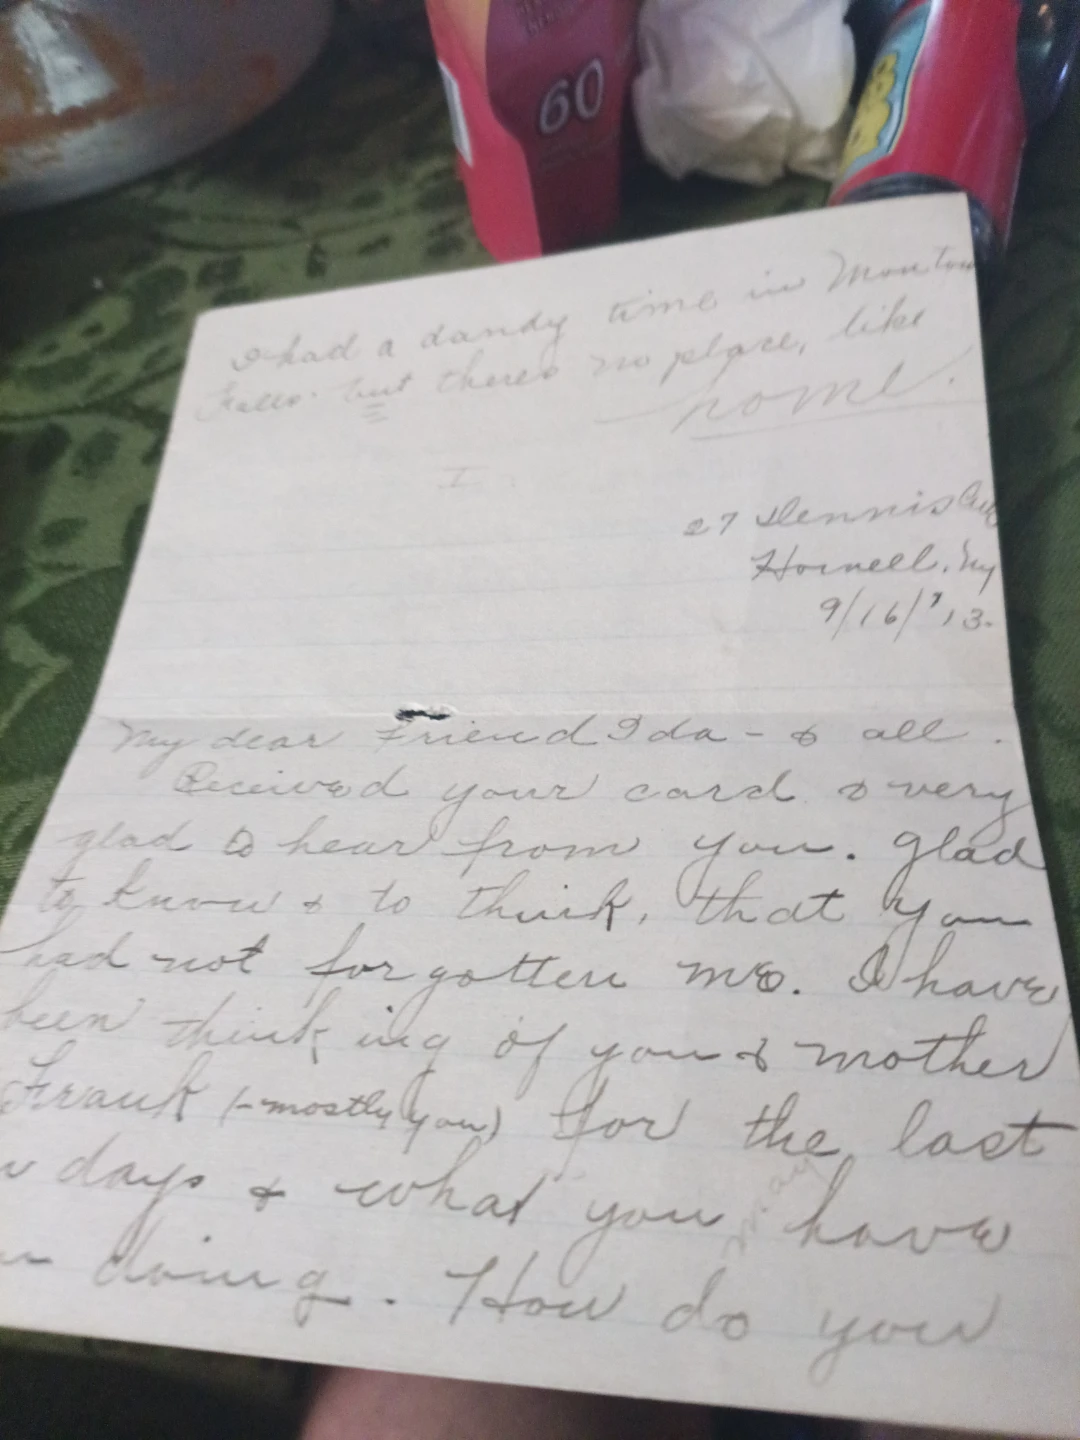 60
I had a dandy time in Montour
Falls. but theres no place, like
home.
I
27 Dennis Ave
Hornell, Ny
9/16/'13.
My dear Friend Ida - & all.
Received your card & very
glad to hear from you. Glad
to know & to think, that you
had not forgotten me. I have
been thinking of you & mother
Frank (-mostly you) for the last
days & what you may have
doing. How do you